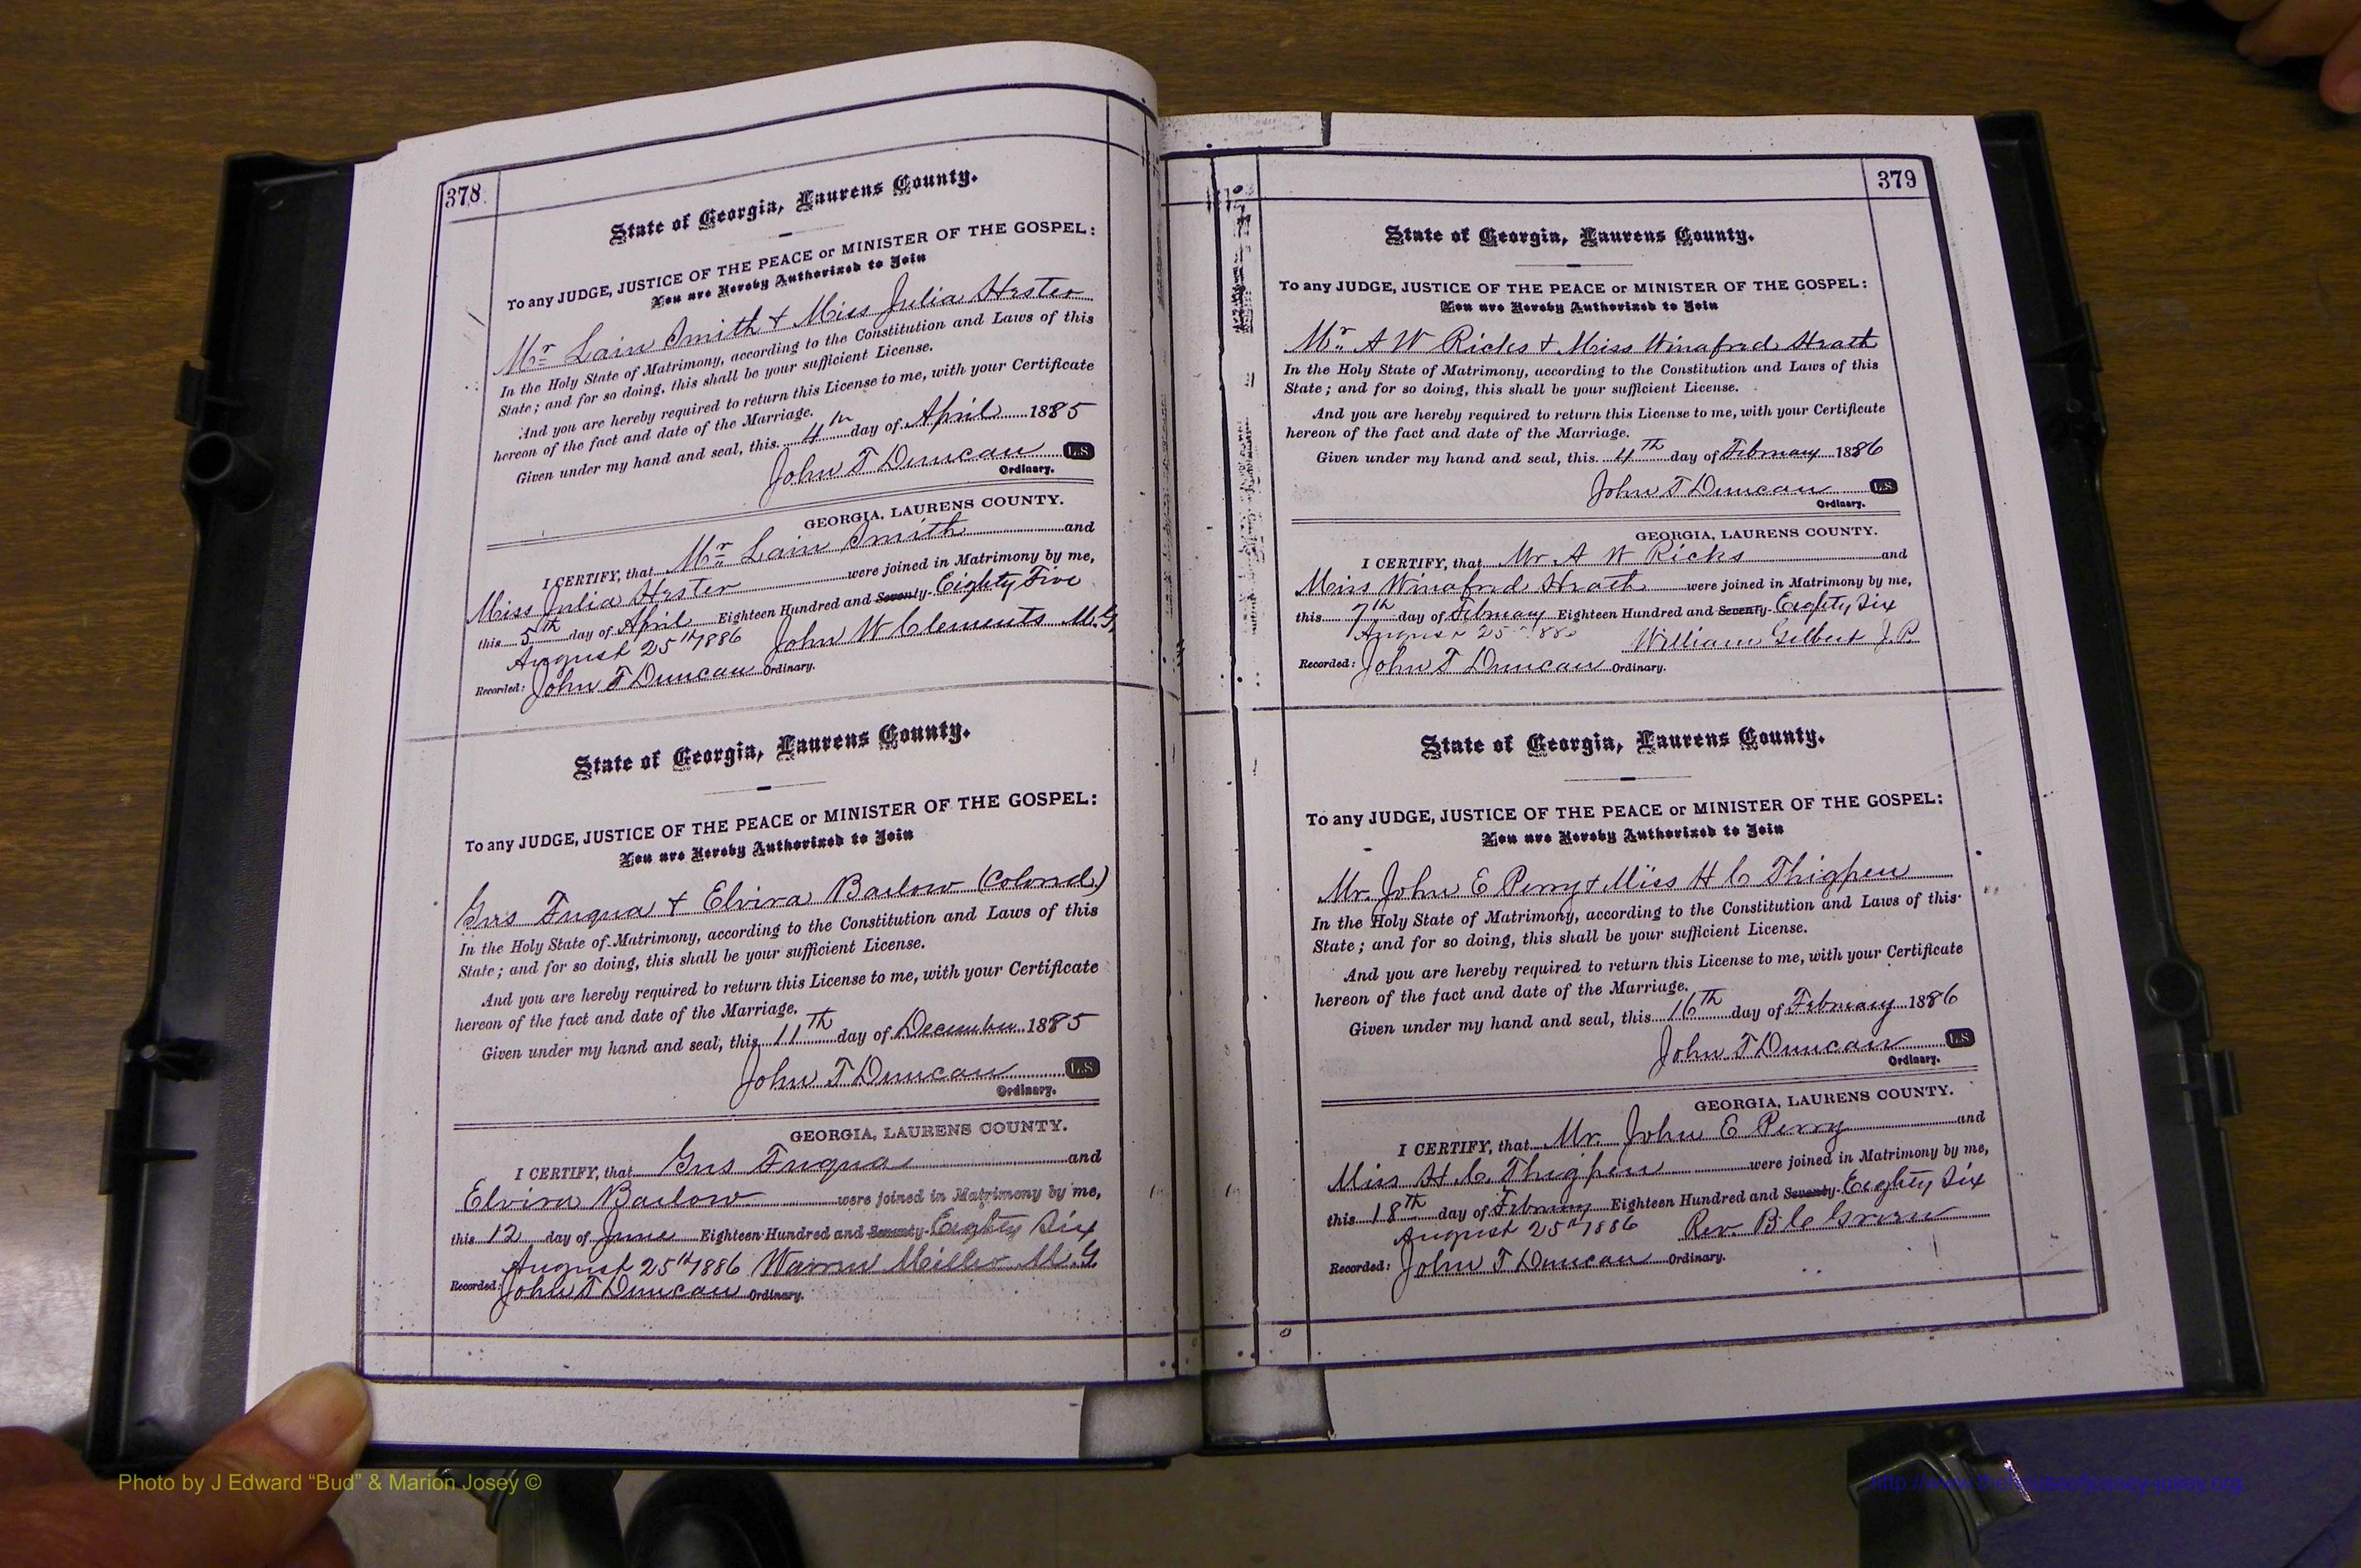 378
State of Georgia, Laurens County.
To any JUDGE, JUSTICE OF THE PEACE or MINISTER OF THE GOSPEL:
You are Hereby Authorized to Join
Mr. Lain Smith & Miss Julia Hester
In the Holy State of Matrimony, according to the Constitution and Laws of this
State; and for so doing, this shall be your sufficient License.
And you are hereby required to return this License to me, with your Certificate
hereon of the fact and date of the Marriage.
Given under my hand and seal, this 4th day of April 1885
John T Duncan L.S.
Ordinary.
GEORGIA, LAURENS COUNTY.
I CERTIFY, that Mr. Lain Smith and
Miss Julia Hester were joined in Matrimony by me,
this 5th day of April Eighteen Hundred and Seventy- Eighty Five
August 25th 1886 John W Clements M.G.
Recorded: John T Duncan Ordinary.
State of Georgia, Laurens County.
To any JUDGE, JUSTICE OF THE PEACE or MINISTER OF THE GOSPEL:
You are Hereby Authorized to Join
Gus Fuqua & Elvira Barlow (Colored)
In the Holy State of Matrimony, according to the Constitution and Laws of this
State; and for so doing, this shall be your sufficient License.
And you are hereby required to return this License to me, with your Certificate
hereon of the fact and date of the Marriage.
Given under my hand and seal, this 11th day of December 1885
John T Duncan L.S.
Ordinary.
GEORGIA, LAURENS COUNTY.
I CERTIFY, that Gus Fuqua and
Elvira Barlow were joined in Matrimony by me,
this 12 day of June Eighteen Hundred and Seventy- Eighty Six
August 25th 1886 Warren Miller M.G.
Recorded: John T Duncan Ordinary.
379
State of Georgia, Laurens County.
To any JUDGE, JUSTICE OF THE PEACE or MINISTER OF THE GOSPEL:
You are Hereby Authorized to Join
Mr. A W Ricks & Miss Winafred Heath
In the Holy State of Matrimony, according to the Constitution and Laws of this
State; and for so doing, this shall be your sufficient License.
And you are hereby required to return this License to me, with your Certificate
hereon of the fact and date of the Marriage.
Given under my hand and seal, this 4th day of February 1886
John T Duncan L.S.
Ordinary.
GEORGIA, LAURENS COUNTY.
I CERTIFY, that Mr A W Ricks and
Miss Winafred Heath were joined in Matrimony by me,
this 7th day of February Eighteen Hundred and Seventy- Eighty Six
August 25th William Gilbert J.P.
Recorded: John T Duncan Ordinary.
State of Georgia, Laurens County.
To any JUDGE, JUSTICE OF THE PEACE or MINISTER OF THE GOSPEL:
You are Hereby Authorized to Join
Mr. John E Perry & Miss H C Thigpen
In the Holy State of Matrimony, according to the Constitution and Laws of this
State; and for so doing, this shall be your sufficient License.
And you are hereby required to return this License to me, with your Certificate
hereon of the fact and date of the Marriage.
Given under my hand and seal, this 16th day of February 1886
John T Duncan L.S.
Ordinary.
GEORGIA, LAURENS COUNTY.
I CERTIFY, that Mr. John E Perry and
Miss H C Thigpen were joined in Matrimony by me,
this 18th day of February Eighteen Hundred and Seventy- Eighty Six
August 25th 1886 Rev. B C Green
Recorded: John T Duncan Ordinary.
Photo by J Edward “Bud” & Marion Josey ©